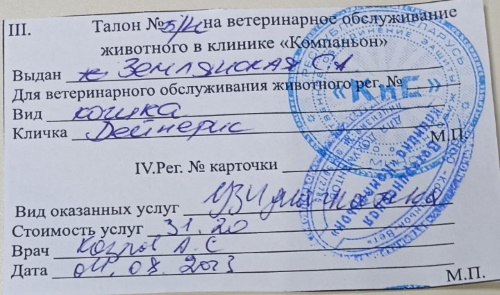 III. Талон № б/н на ветеринарное обслуживание
животного в клинике «Компаньон»
Выдан Землянская С А
Для ветеринарного обслуживания животного рег. №
Вид кошка
Кличка Дейнерис
М.П.
IV.Рег. № карточки
Вид оказанных услуг УЗИ
Стоимость услуг 31.20
Врач Козлов А. С
Дата 04.08.2023
М.П.
«КиЕ»